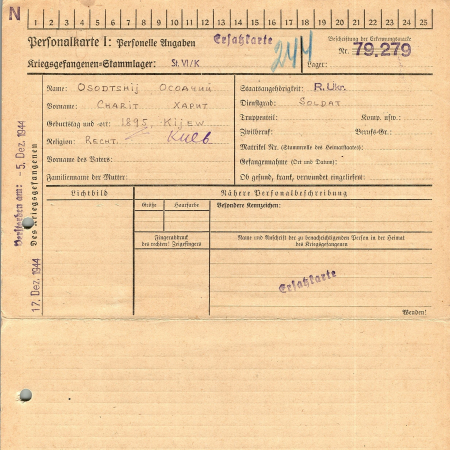 N
1 2 3 4 5 6 7 8 9 10 11 12 13 14 15 16 17 18 19 20 21 22 23 24 25
Personalkarte I: Personelle Angaben
Ersatzkarte
244
Beschriftung der Erkennungsmarke
Nr. 79.279
Kriegsgefangenen-Stammlager: St. VI/K
Lager:
Name: OSODTSHIJ ОСОДЧИЙ
Staatsangehörigkeit: R. Ukr.
Vorname: CHARIT ХАРИТ
Dienstgrad: SOLDAT
Geburtstag und -ort: 1895, KIJEW
Truppenteil: Komp. usw.:
Religion: RECHT. Киев
Zivilberuf: Berufs-Gr.:
Vorname des Vaters:
Matrikel Nr. (Stammrolle des Heimatstaates):
Gefangennahme (Ort und Datum):
Familienname der Mutter:
Ob gesund, krank, verwundet eingeliefert:
Des Kriegsgefangenen
Verstorben am: -5. Dez. 1944
17. Dez. 1944
Lichtbild
Nähere Personalbeschreibung
Größe Haarfarbe
Besondere Kennzeichen:
Fingerabdruck
des rechten! Zeigefingers
Name und Anschrift der zu benachrichtigenden Person in der Heimat
des Kriegsgefangenen
Ersatzkarte
Wenden!